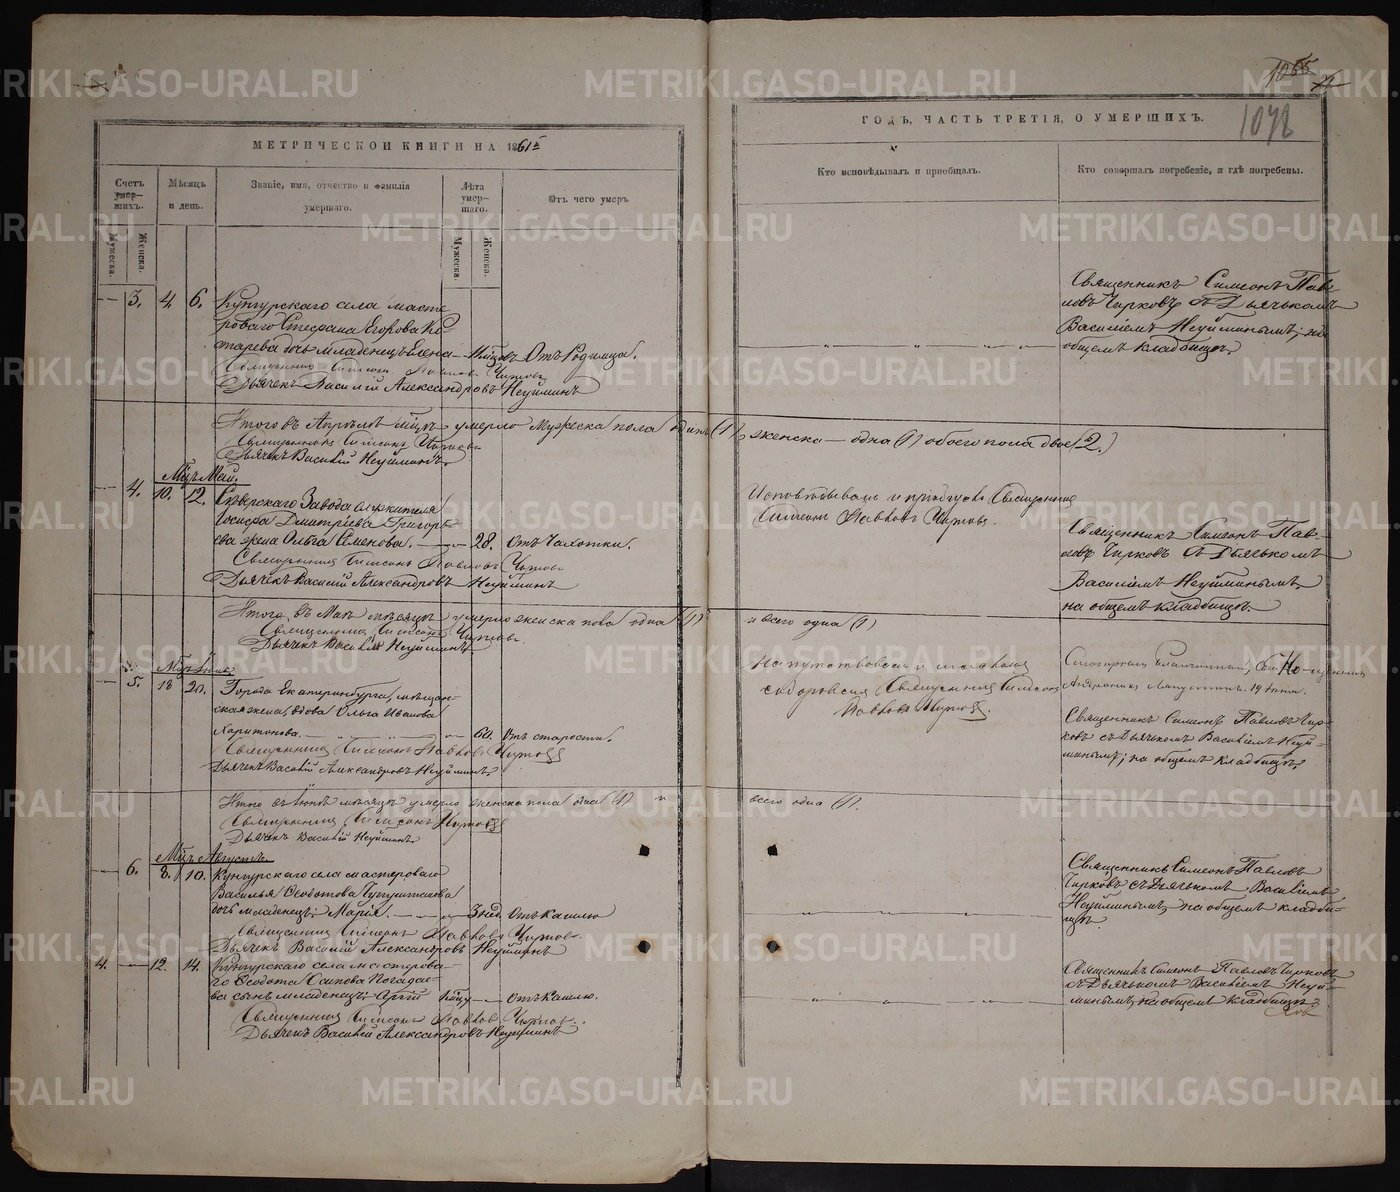 1065
1072
МЕТРИЧЕСКОЙ КНИГИ НА 1861й
ГОДЪ, ЧАСТЬ ТРЕТІЯ, О УМЕРШИХЪ.
Счетъ умер-шихъ.
Мужеска.
Женска.
Мѣсяцъ и день.
Званіе, имя, отчество и фамилія
умершаго.
Лѣта умер-шаго.
Мужеска.
Женска.
Отъ чего умеръ
Кто исповѣдывалъ и приобщалъ.
Кто совершалъ погребеніе, и гдѣ погребены.
3. 4. 6. Кунгурскаго села масте-
роваго Стефана Егорова
дочь младенецъ Елена Отъ Родимца.
Священникъ Симеонъ Павловъ Чирковъ
Дьячекъ Василій Александровъ Неуйминъ
Священникъ Симеонъ Пав-
ловъ Чирковъ съ Дьячькомъ
Василіемъ Неуйминымъ; на
общемъ кладбищѣ.
Итого въ Апрѣлѣ мцѣ умерло Мужеска пола одинъ (1), женска одна (1) обоего пола двое (2.)
Священникъ Симеонъ Чирковъ
Дьячекъ Василій Неуйминъ.
Мцъ Май.
4. 10. 12. Сѣверскаго Завода служителя
Іосифа Дмитріева Григорь-
ева жена Ольга Семенова. 28. Отъ Чахотки.
Священникъ Симеонъ Павловъ Чирковъ
Дьячекъ Василій Александровъ Неуйминъ
Исповѣдывалъ и приобщалъ Священникъ
Симеонъ Павловъ Чирковъ.
Священникъ Симеонъ Пав-
ловъ Чирковъ съ Дьячькомъ
Василіемъ Неуйминымъ
на общемъ кладбищѣ.
Итого въ Маѣ мѣсяцѣ умерло женска пола одна (1) и всего одна (1)
Священникъ Симеонъ Чирковъ
Дьячекъ Василій Неуйминъ
Мцъ Іюнь
5. 18 20. Города Екатеринбурга, мѣщан-
ская жена, вдова Ольга Иванова
Харитонова. 60. Отъ старости.
Священникъ Симеонъ Павловъ Чирковъ
Дьячекъ Василій Александровъ Неуйминъ.
Священникъ Симеонъ
Павловъ Чирковъ.
Смотрѣлъ Благочинный,
19 Іюня.
Священникъ Симеонъ Павловъ Чир-
ковъ съ Дьячькомъ Василіемъ Неуй-
минымъ; на общемъ кладбищѣ.
Итого въ Іюнѣ мѣсяцѣ умерло женска пола одна (1) и всего одна (1).
Священникъ Симеонъ Чирковъ
Дьячекъ Василій Неуйминъ.
Мцъ Августъ.
6. 8. 10. Кунгурскаго села мастероваго
Василья Ѳедотова
дочь младенецъ Марія. 3 нед. Отъ кашлю
Священникъ Симеонъ Павловъ Чирковъ.
Дьячекъ Василій Александровъ Неуйминъ
Священникъ Симеонъ Павловъ
Чирковъ съ Дьячькомъ Василіемъ
Неуйминымъ, на общемъ кладби-
щѣ.
4. 12. 14. Кунгурскаго села мастерова-
го Ѳедота Осипова
сынъ младенецъ Отъ кашлю.
Священникъ Симеонъ Павловъ Чирковъ.
Дьячекъ Василій Александровъ Неуйминъ
Священникъ Симеонъ Павловъ Чирковъ
съ Дьячькомъ Василіемъ Неуй-
минымъ, на общемъ кладбищѣ
METRIKI.GASO-URAL.RU